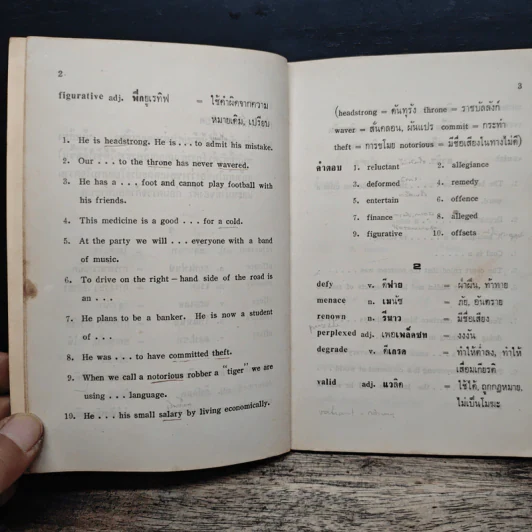 2
figurative adj. ฟิกยูเรทิฟ = ใช้คำผิดจากความ
หมายเดิม, เปรียบ
1. He is headstrong. He is . . . to admit his mistake.
2. Our . . . to the throne has never wavered.
3. He has a . . . foot and cannot play football with
his friends.
4. This medicine is a good . . . for a cold.
5. At the party we will . . . everyone with a band
of music.
6. To drive on the right – hand side of the road is
an . . .
7. He plans to be a banker. He is now a student
of . . .
8. He was . . . to have committed theft.
9. When we call a notorious robber a "tiger" we are
using . . . language.
10. He . . . his small salary by living economically.
3
(headstrong = ดันทุรัง throne = ราชบัลลังก์
waver = สั่นคลอน, ผันแปร commit = กระทำ
theft = การขโมย notorious = มีชื่อเสียงในทางไม่ดี)
คำตอบ 1. reluctant 2. allegiance
3. deformed 4. remedy
5. entertain 6. offence
7. finance 8. alleged
9. figurative 10. offsets
2
defy v. ดีฟาย = ฝ่าฝืน, ท้าทาย
menace n. เมนัซ = ภัย, อันตราย
renown n. รีนาว = มีชื่อเสียง
perplexed adj. เพอเพล็คซท = งงงัน
degrade v. ดีเกรด = ทำให้ต่ำลง, ทำให้
เสื่อมเกียรติ
valid adj. แวลิด = ใช้ได้, ถูกกฎหมาย,
ไม่เป็นโมฆะ